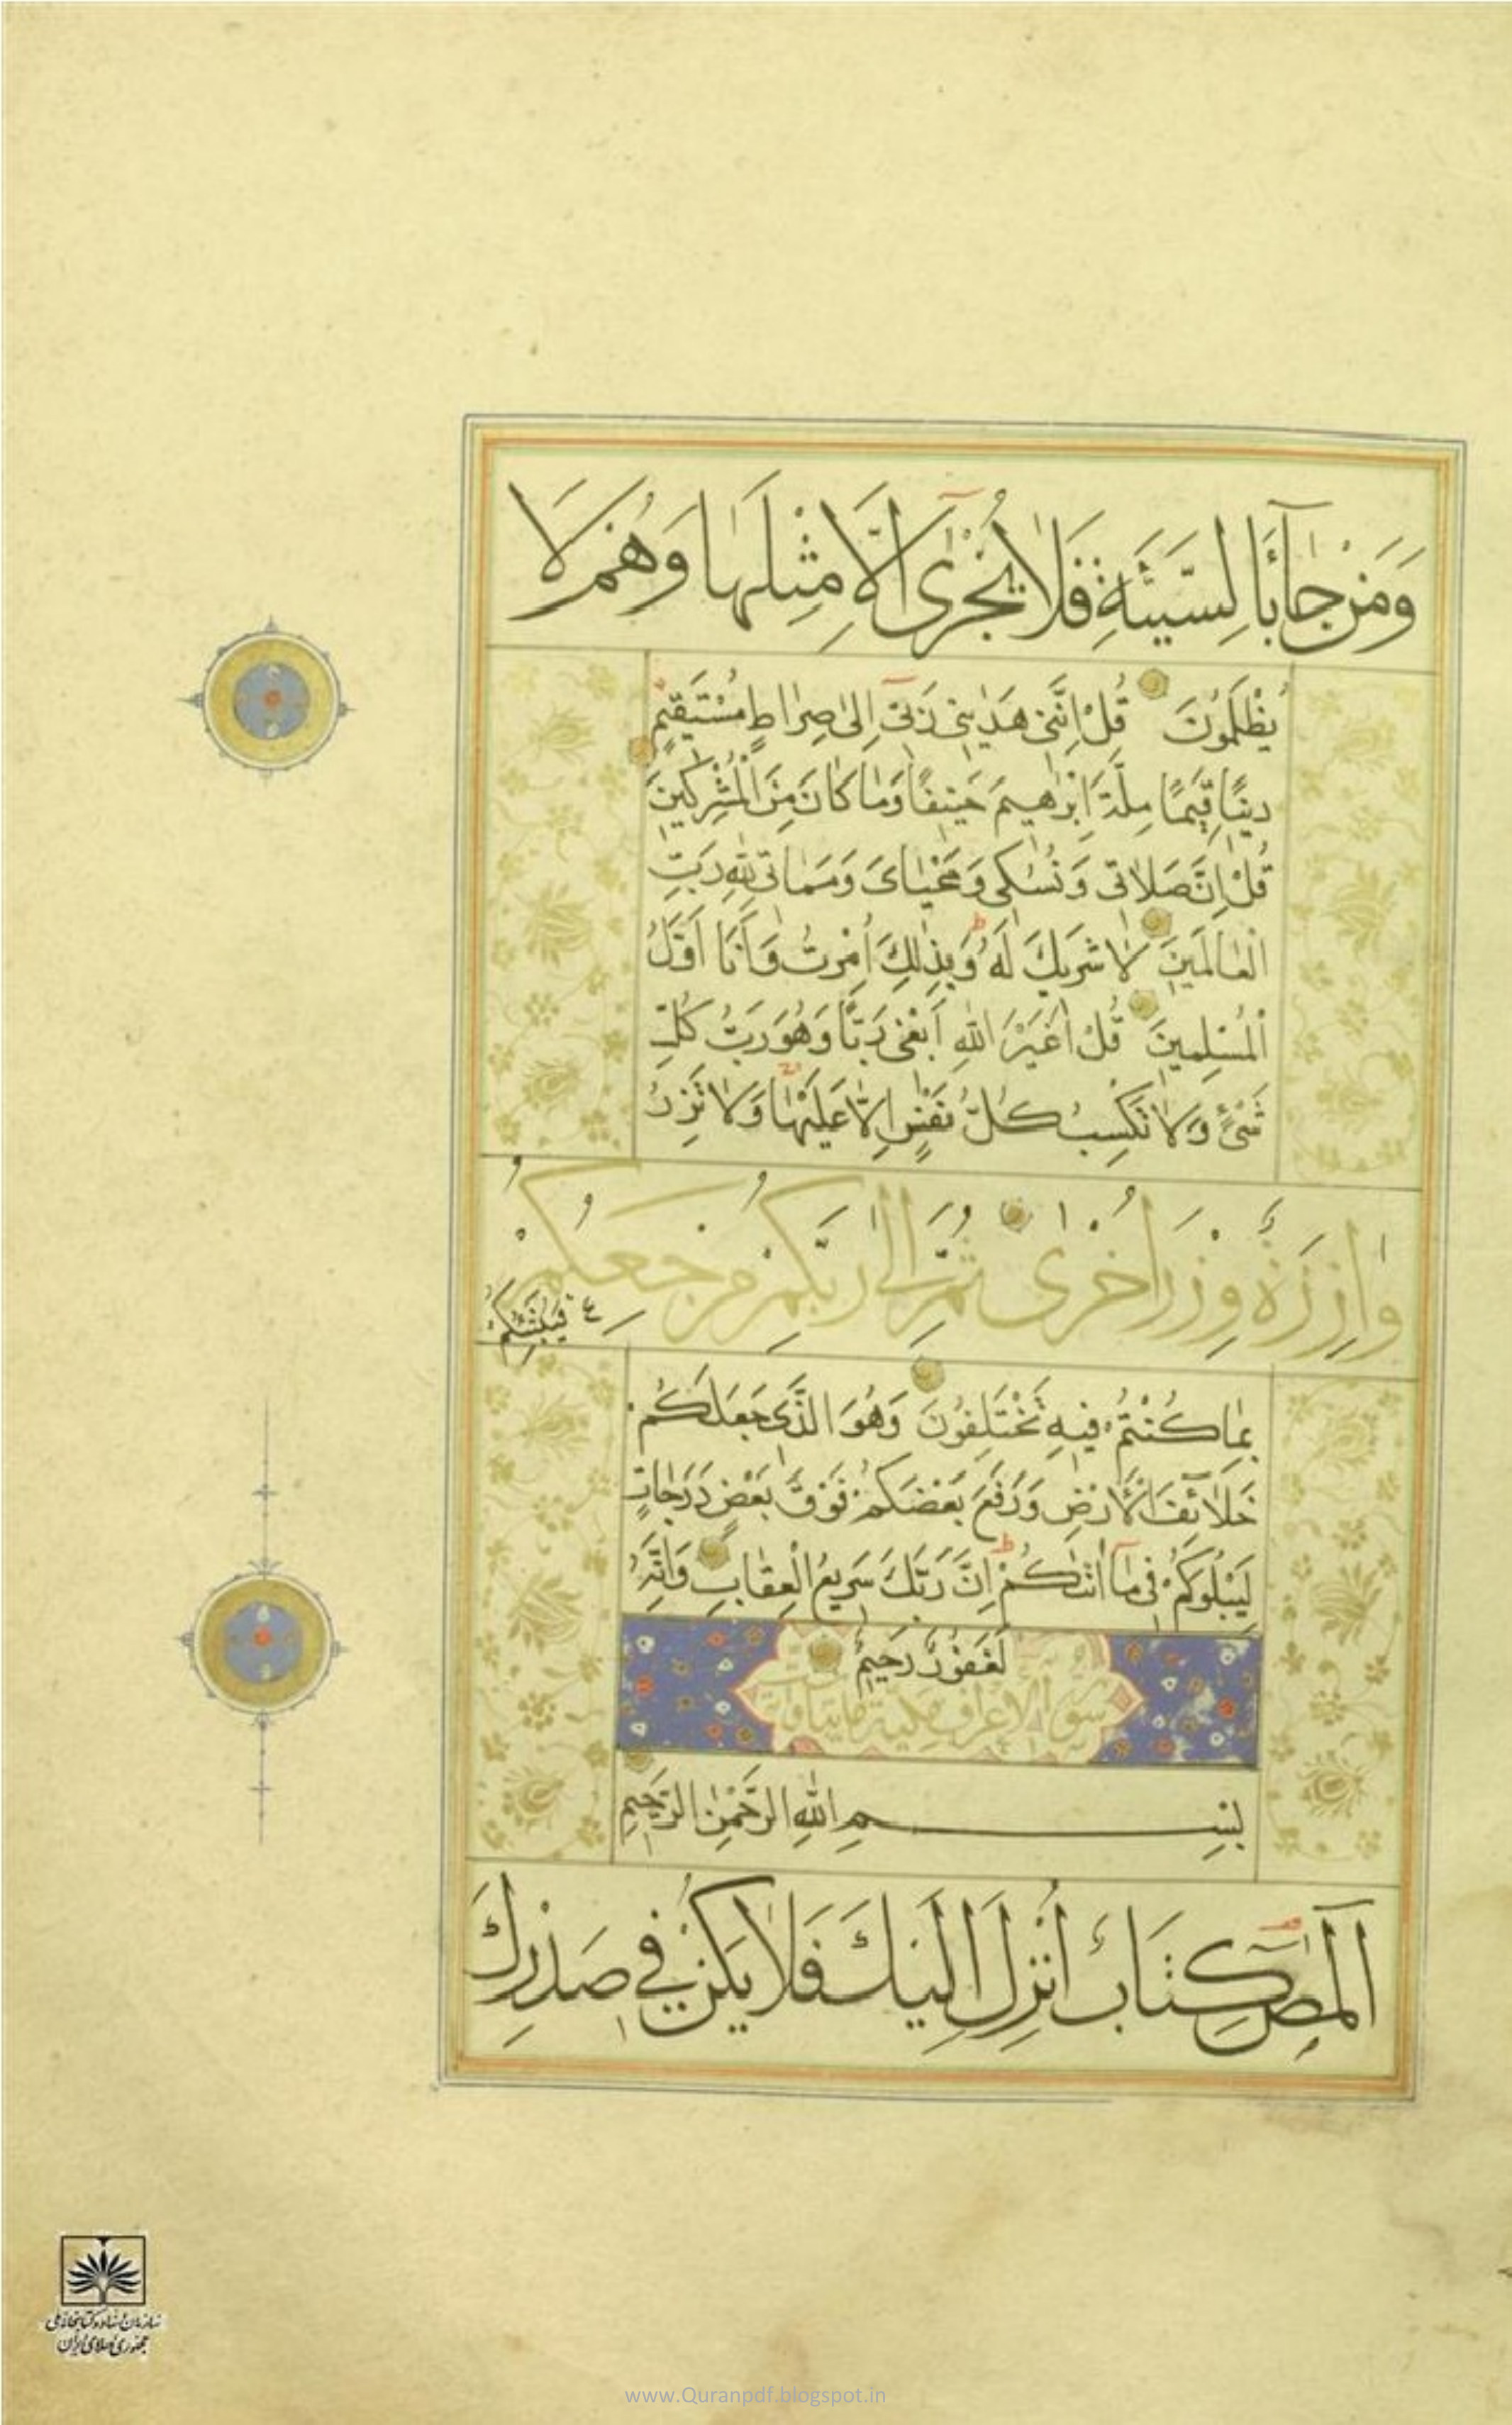 وَمَنْ جَآءَ بِالسَّيِّئَةِ فَلَا يُجْزٰى اِلَّا مِثْلَهَا وَهُمْ لَا
يُظْلَمُونَ قُلْ اِنَّنِى هَدٰينِى رَبِّى اِلٰى صِرَاطٍ مُسْتَقِيمٍ
دِينًا قِيَمًا مِلَّةَ اِبْرٰهِيمَ حَنِيفًا وَمَا كَانَ مِنَ الْمُشْرِكِينَ
قُلْ اِنَّ صَلَاتِى وَنُسُكِى وَمَحْيَاىَ وَمَمَاتِى لِلّٰهِ رَبِّ
الْعَالَمِينَ لَا شَرِيكَ لَهُ وَبِذٰلِكَ اُمِرْتُ وَاَنَا اَوَّلُ
الْمُسْلِمِينَ قُلْ اَغَيْرَ اللّٰهِ اَبْغِى رَبًّا وَهُوَ رَبُّ كُلِّ
شَىْءٍ وَلَا تَكْسِبُ كُلُّ نَفْسٍ اِلَّا عَلَيْهَا وَلَا تَزِرُ
وَازِرَةٌ وِزْرَ اُخْرٰى ثُمَّ اِلٰى رَبِّكُمْ مَرْجِعُكُمْ
فَيُنَبِّئُكُمْ
بِمَا كُنْتُمْ فِيهِ تَخْتَلِفُونَ وَهُوَ الَّذِى جَعَلَكُمْ
خَلَآئِفَ الْاَرْضِ وَرَفَعَ بَعْضَكُمْ فَوْقَ بَعْضٍ دَرَجَاتٍ
لِيَبْلُوَكُمْ فِى مَآ اٰتٰىكُمْ اِنَّ رَبَّكَ سَرِيعُ الْعِقَابِ وَاِنَّهُ
لَغَفُورٌ رَحِيمٌ
سورة الاعراف مكية مايتا
بِسْمِ اللّٰهِ الرَّحْمٰنِ الرَّحِيمِ
الٓمٓصٓ كِتَابٌ اُنْزِلَ اِلَيْكَ فَلَا يَكُنْ فِى صَدْرِكَ
سازمان اسناد و کتابخانه ملی
جمهوری اسلامی ایران
www.Quranpdf.blogspot.in